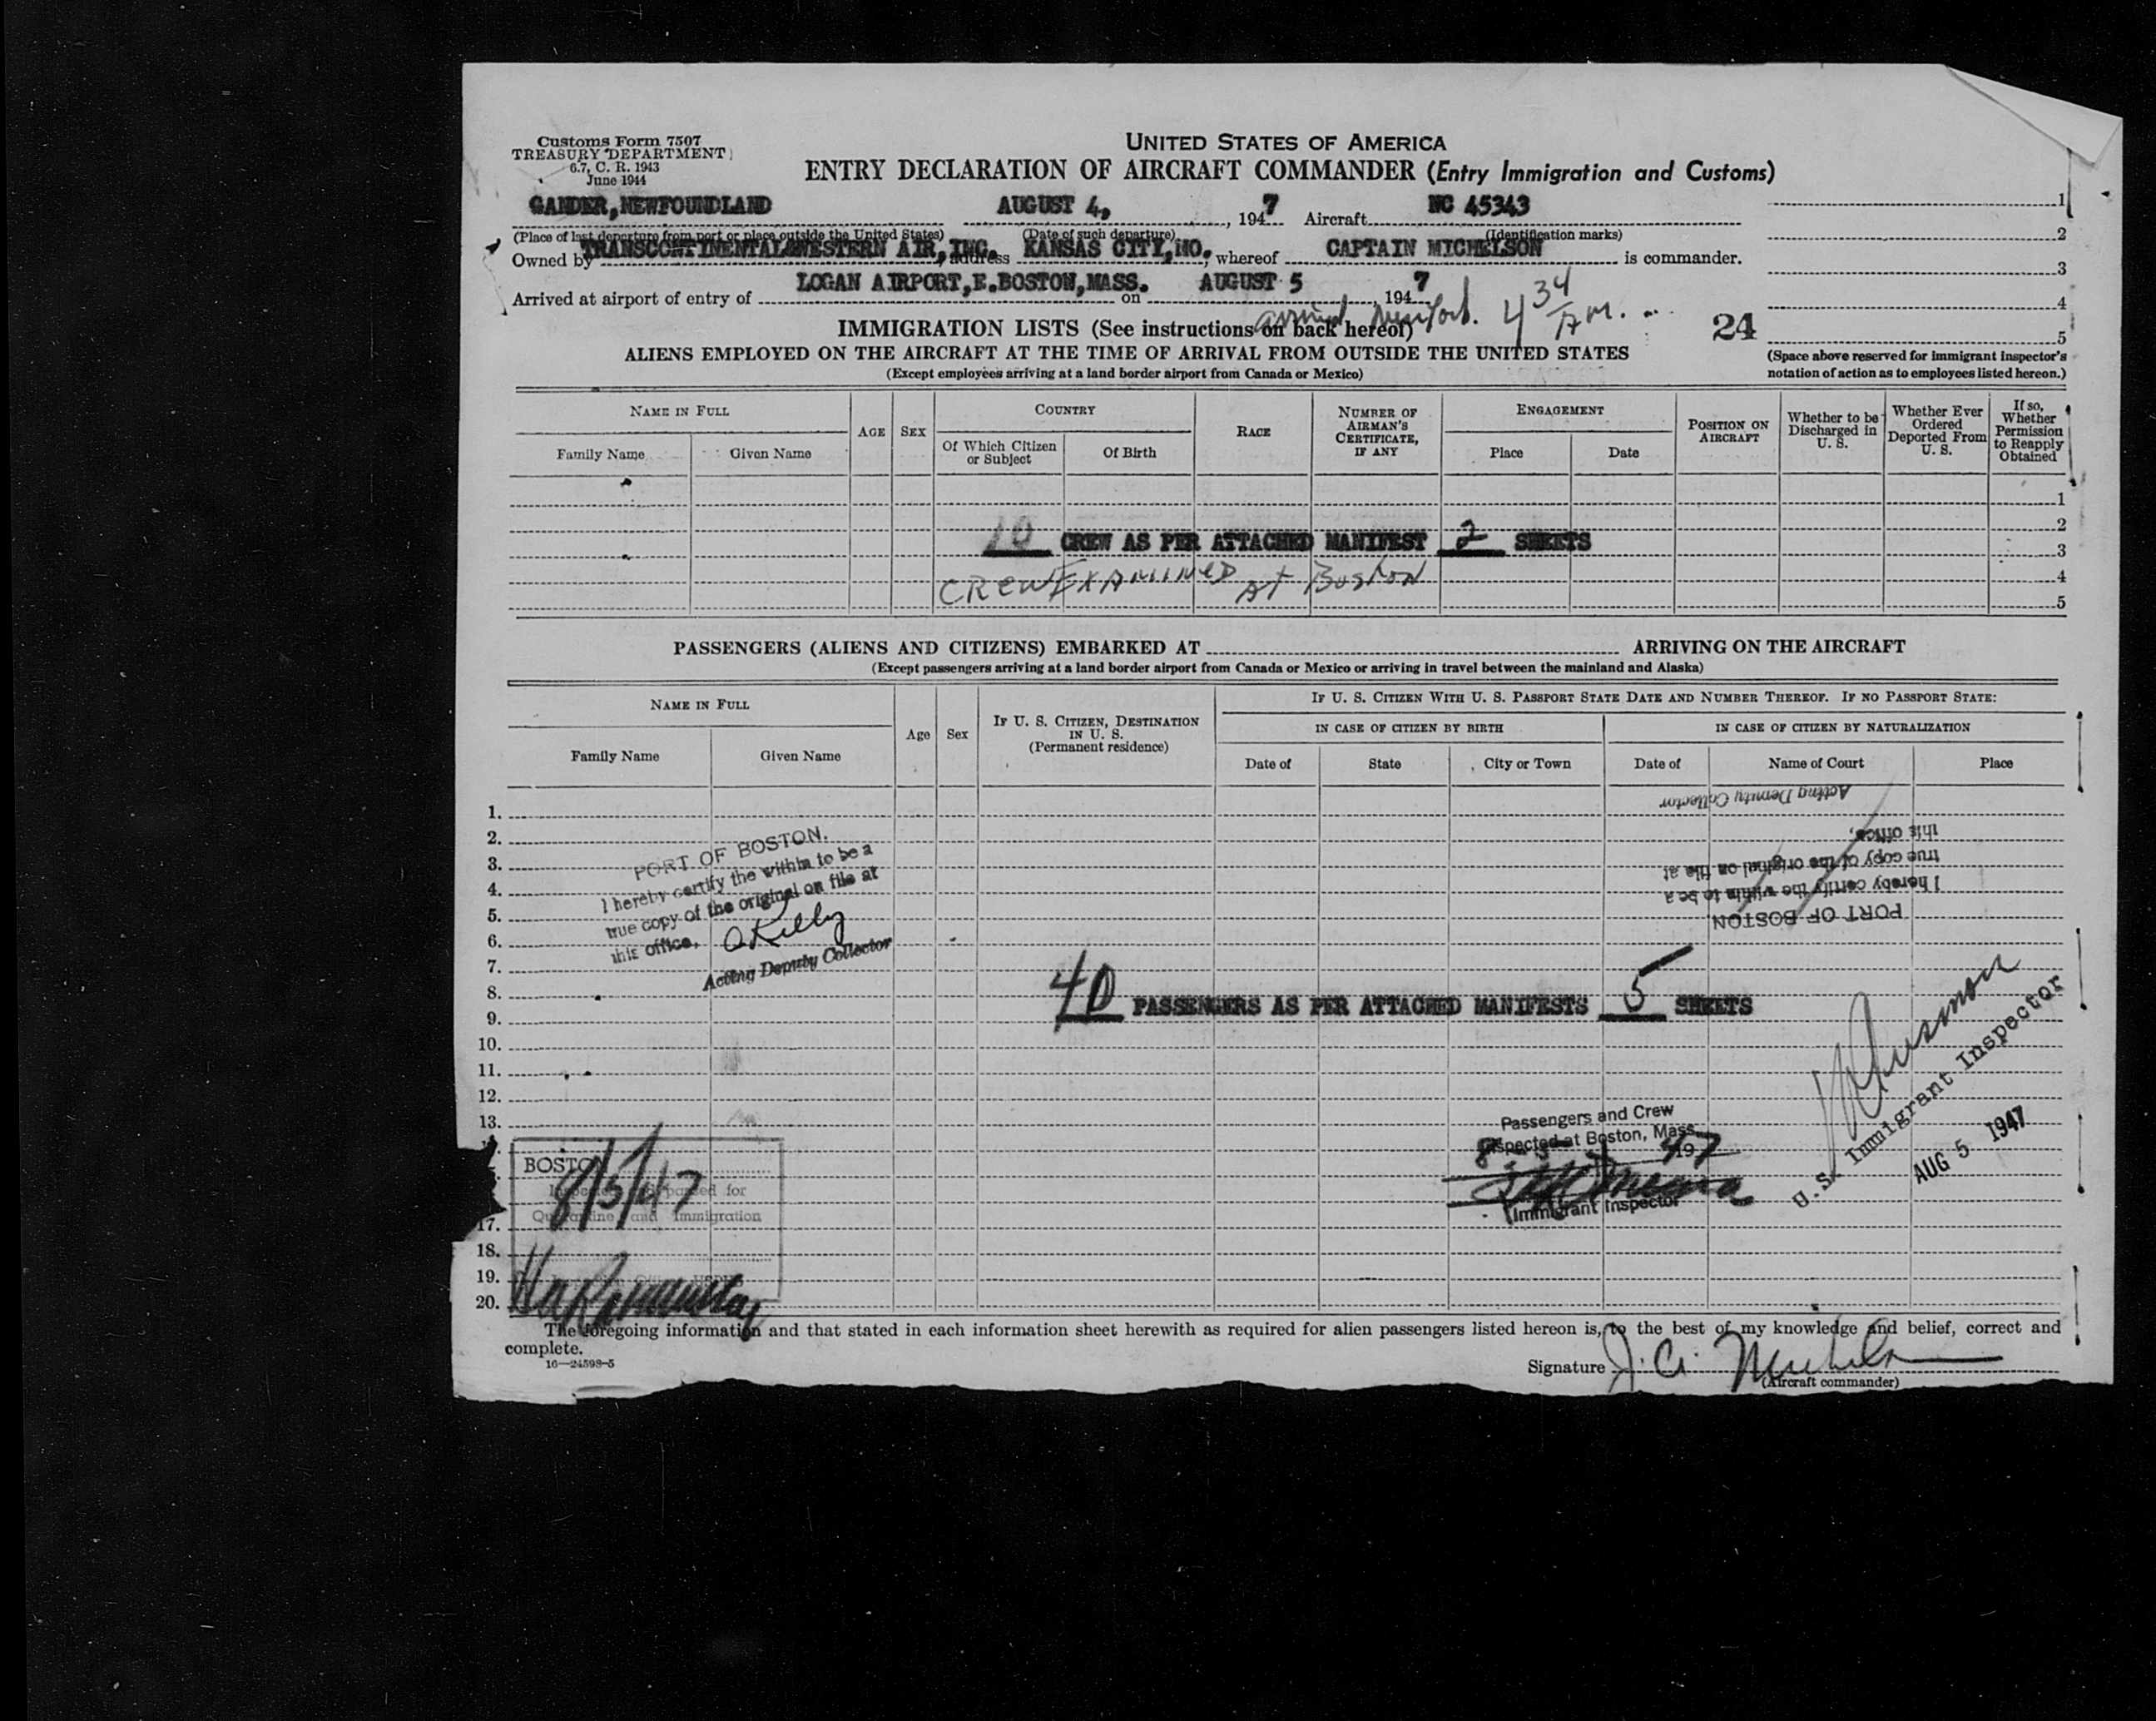 Customs Form 7507
TREASURY DEPARTMENT
6.7, C. R. 1943
June 1944
UNITED STATES OF AMERICA
ENTRY DECLARATION OF AIRCRAFT COMMANDER (Entry Immigration and Customs)
GANDER,NEWFOUNDLAND AUGUST 4, 1947 Aircraft NC 45343
(Place of last departure from port or place outside the United States) (Date of such departure) (Identification marks)
Owned by TRANSCONTINENTAL&WESTERN AIR,INC. address KANSAS CITY,MO. whereof CAPTAIN MICHELSON is commander.
Arrived at airport of entry of LOGAN AIRPORT,E.BOSTON,MASS. on AUGUST 5 1947
arrived New York. 4 34 AM.
1
2
3
4
5
24
(Space above reserved for immigrant inspector's notation of action as to employees listed hereon.)
IMMIGRATION LISTS (See instructions on back hereof)
ALIENS EMPLOYED ON THE AIRCRAFT AT THE TIME OF ARRIVAL FROM OUTSIDE THE UNITED STATES
(Except employees arriving at a land border airport from Canada or Mexico)
NAME IN FULL
Family Name Given Name
AGE SEX
COUNTRY
Of Which Citizen or Subject Of Birth
RACE
NUMBER OF AIRMAN'S CERTIFICATE, IF ANY
ENGAGEMENT
Place Date
POSITION ON AIRCRAFT
Whether to be Discharged in U. S.
Whether Ever Ordered Deported From U. S.
If so, Whether Permission to Reapply Obtained
1
2
10 CREW AS PER ATTACHED MANIFEST 2 SHEETS
3
CREW EXAMINED AT Boston
4
5
PASSENGERS (ALIENS AND CITIZENS) EMBARKED AT ARRIVING ON THE AIRCRAFT
(Except passengers arriving at a land border airport from Canada or Mexico or arriving in travel between the mainland and Alaska)
NAME IN FULL
Family Name Given Name
Age Sex
IF U. S. CITIZEN, DESTINATION IN U. S.
(Permanent residence)
IF U. S. CITIZEN WITH U. S. PASSPORT STATE DATE AND NUMBER THEREOF. IF NO PASSPORT STATE:
IN CASE OF CITIZEN BY BIRTH IN CASE OF CITIZEN BY NATURALIZATION
Date of State City or Town Date of Name of Court Place
1.
2.
3.
4.
5.
6.
7.
8.
9.
10.
11.
12.
13.
17.
18.
19.
20.
PORT OF BOSTON.
I hereby certify the within to be a
true copy of the original on file at
this office.
O Kelly
Acting Deputy Collector
PORT OF BOSTON
I hereby certify the within to be a
true copy of the original on file at
this office,
Acting Deputy Collector
40 PASSENGERS AS PER ATTACHED MANIFESTS 5 SHEETS
U.S. Immigrant Inspector
AUG 5 1947
Passengers and Crew
Inspected at Boston, Mass.
8 5 1947
Immigrant Inspector
BOSTON
8/5/47
Quarantine and Immigration
The foregoing information and that stated in each information sheet herewith as required for alien passengers listed hereon is, to the best of my knowledge and belief, correct and
complete.
16—24598-5
Signature
(Aircraft commander)